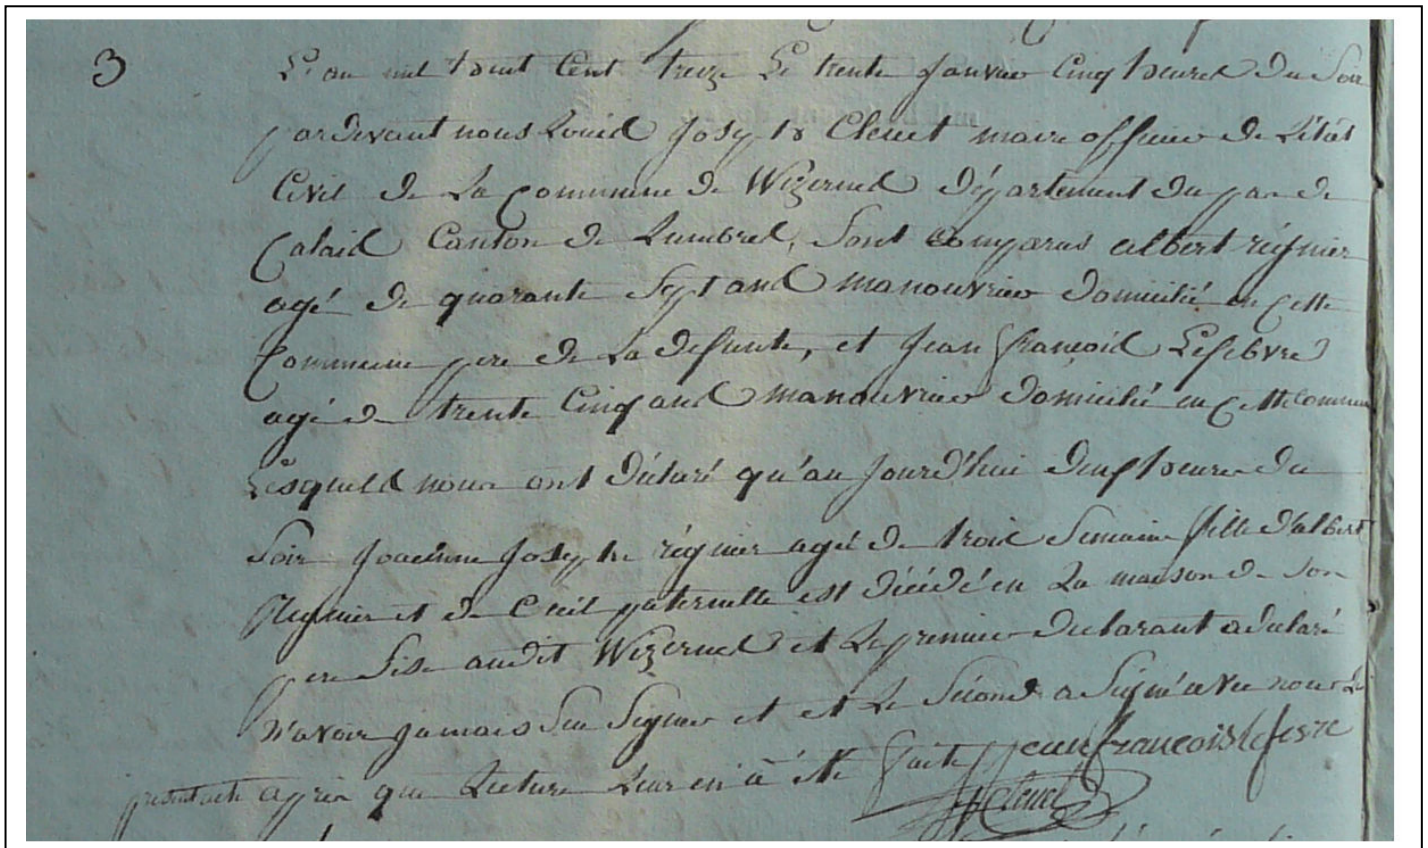 3
L'an mil huit Cent treize Le trente Janvier Cinq heures du Soir
pardevant nous Louis Joseph Cleuet maire officier de L'état
Civil de La Commune de Wizernes département du pas de
Calais Canton de Lumbres, Sont comparus albert régnier
agé de quarante Sept ans manouvrier domicilié en Cette
Commune pere de La defunte, et Jean françois Lefebvre
agé de trente Cinq ans manouvrier domicilié en Cette Commune
Lesquels nous ont déclaré qu'au Jourd'hui deux heures du
Soir Josephe régnier agée de trois Semaine fille d'albert
Regnier et de est décédé en La maison de Son
pere Sise audit Wizernes et Le premier declarant a declaré
n'avoir Jamais Su Signer et et Le Second a Signé avec nous Le
present acte après que Lecture Leur en à été faite Jean francois lefevre
Cleuet